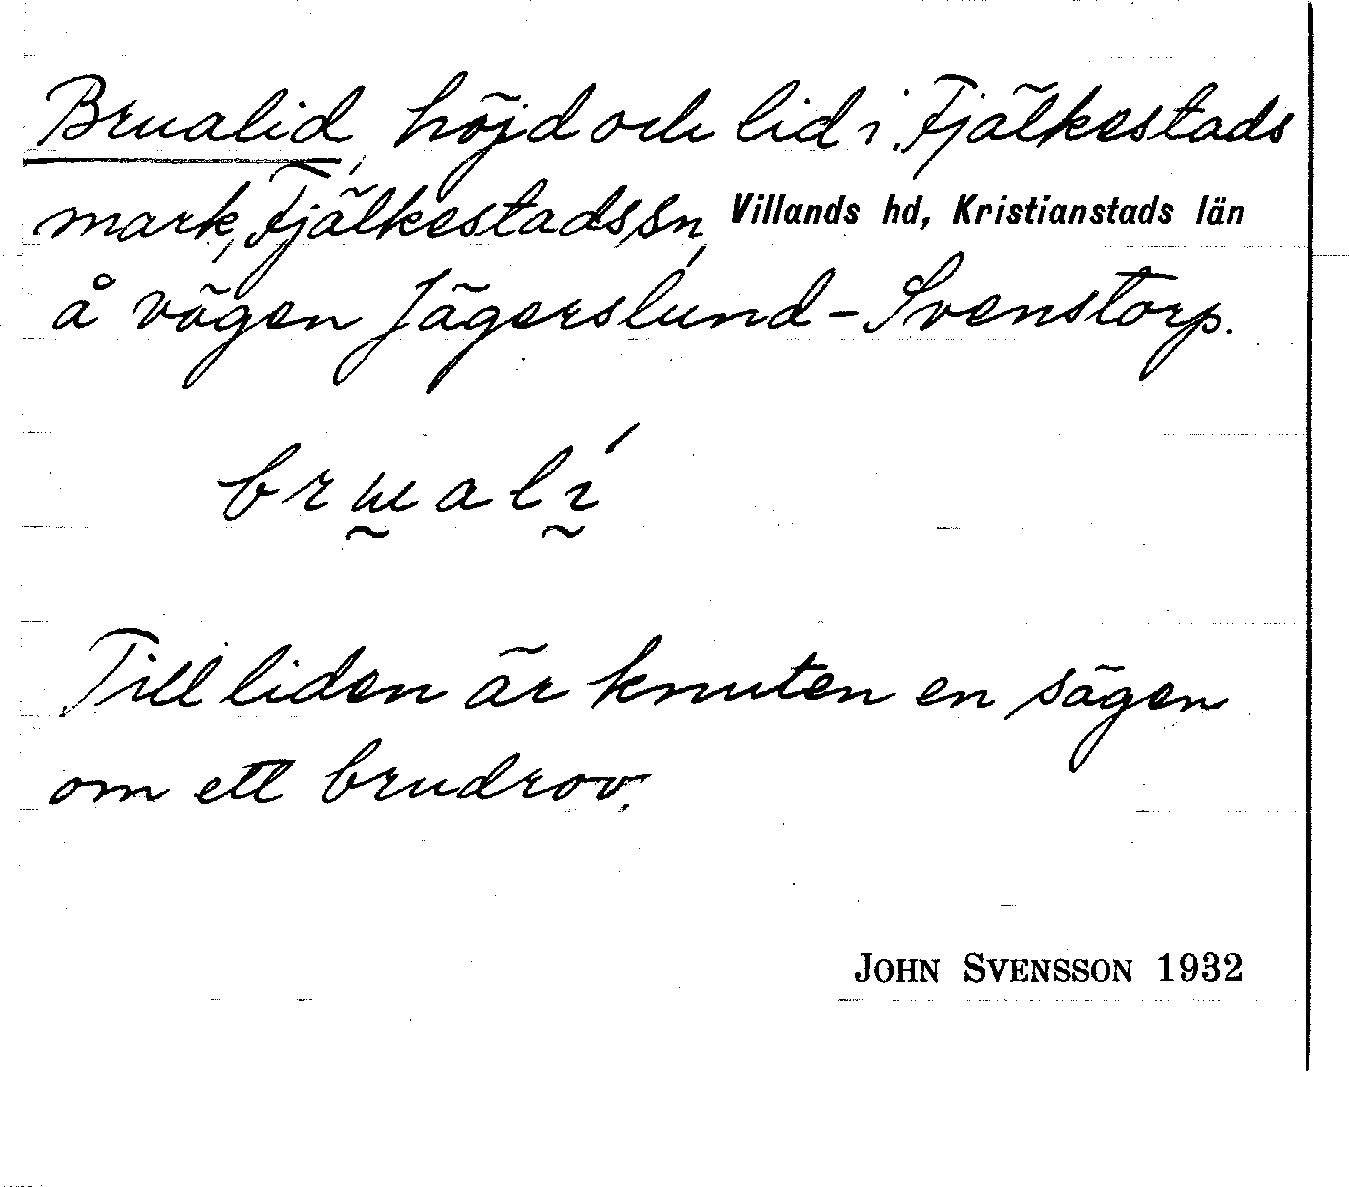 Brualid, höjd och lid i Fjälkestads
mark, Fjälkestads sn, Villands hd, Kristianstads län
å vägen Jägerslund-Svenstorp.
brɯ̰alḭ́
Till liden är knuten en sägen
om ett brudrov.
JOHN SVENSSON 1932